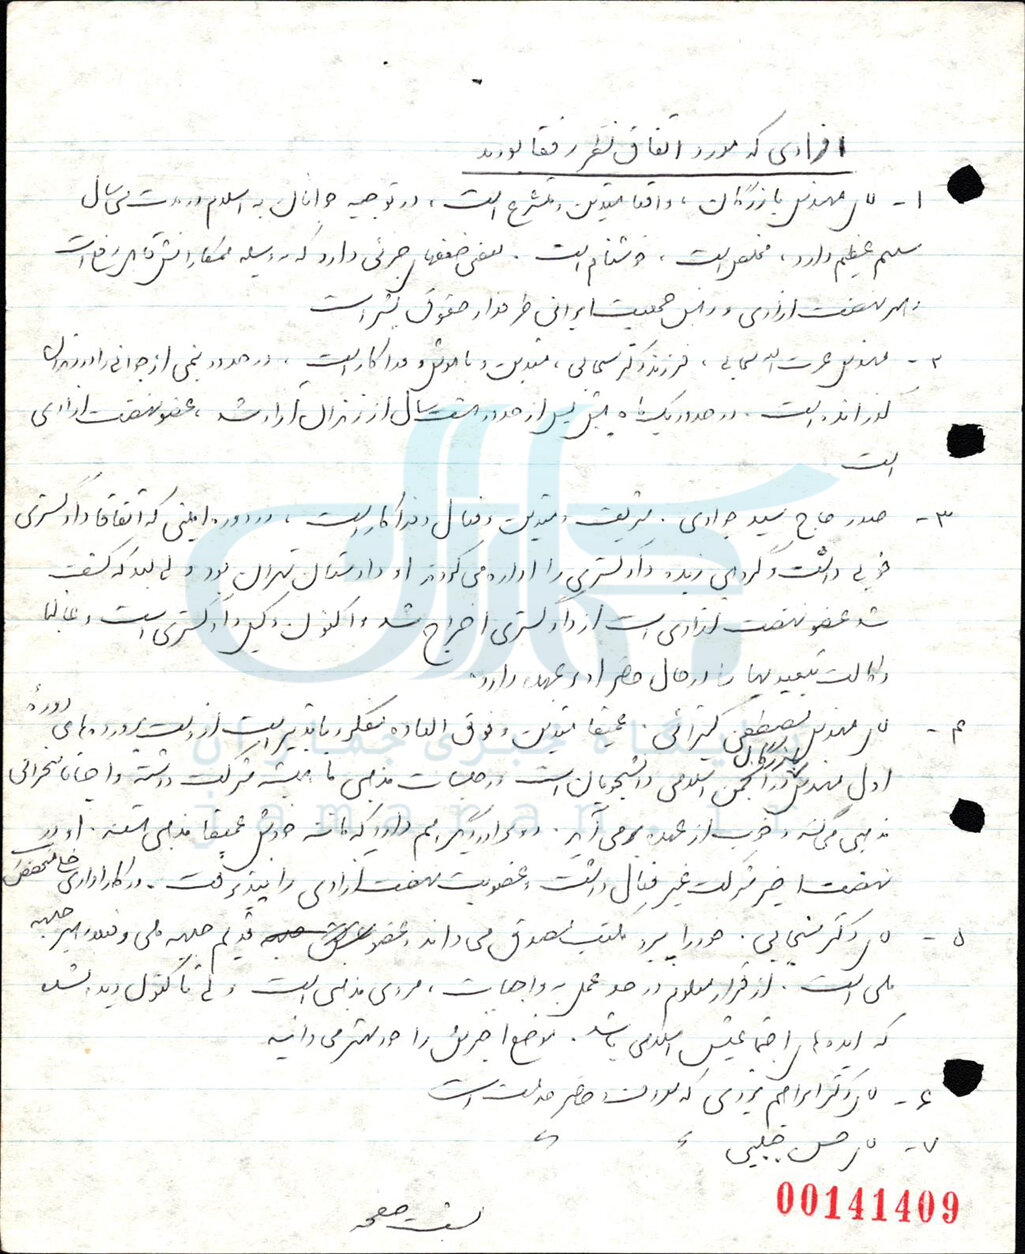 افرادی که مورد اتفاق نظر رفقا بودند
۱- آقای مهندس بازرگان، واقعا متدین و متشرع است، در توجیه جوانان به اسلام در مدت سی سال
سهم عظیم دارد، مخلص است، خوشنام است. بعضی ضعفهای جزئی دارد که به وسیله همکارانش قابل رفع است
رهبر نهضت آزادی و رئیس جمعیت ایرانی طرفدار حقوق بشر است
۲- مهندس عزت الله سحابی، فرزند دکتر سحابی، متدین و باهوش و فداکار است، در حدود نیمی از جوانی را در زندان
گذرانده است. در حدود یک ماه پیش پس از حدود هشت سال از زندان آزاد شد، عضو نهضت آزادی
است
۳- صدر حاج سید جوادی. شریف و متدین و فعال و فداکار است، در دوره امینی که اتفاقا دادگستری
خوبی داشت و گروهی زبده دادگستری را اداره می‌کردند او دادستان تهران بود ولی بعد که کشف
شد عضو نهضت آزادی است از دادگستری اخراج شد و اکنون وکیل دادگستری است و غالبا
وکالت تبعیدیها را در حال حاضر او بر عهده دارد.
۴- آقای مهندس مصطفی کتیرائی. عمیقا متدین و فوق العاده متفکر و با تدبیر است از دست پرورده‌های دورهٔ
اول مهندس بازرگان در انجمن اسلامی دانشجویان است در جلسات مذهبی ما همیشه شرکت داشته و احیانا سخنرانی
مذهبی می‌کند و خوب از عهده برمی‌آید. دو برادر دیگر هم دارد که مانند خودش عمیقا مذهبی هستند. او در
نهضت اخیر شرکت غیر فعال داشت و عضویت نهضت آزادی را نپذیرفت. در کار اداری خیلی
۵- آقای دکتر سنجابی. خود را پیرو مکتب مصدق می‌داند و عضو قدیم جبهه ملی و فعلا رهبر جبهه
ملی است. از قرار معلوم در حد عمل به واجبات، مردی مذهبی است ولی تا کنون دیده نشده
که ایده‌های اجتماعیش اسلامی باشد. موضع اخیرش را خود بهتر می‌دانید
۶- آقای دکتر ابراهیم یزدی که در خدمت است
۷- آقای حسن حبیبی " " "
پشت صفحه
00141409
جماران
پایگاه خبری جماران
jamaran.ir